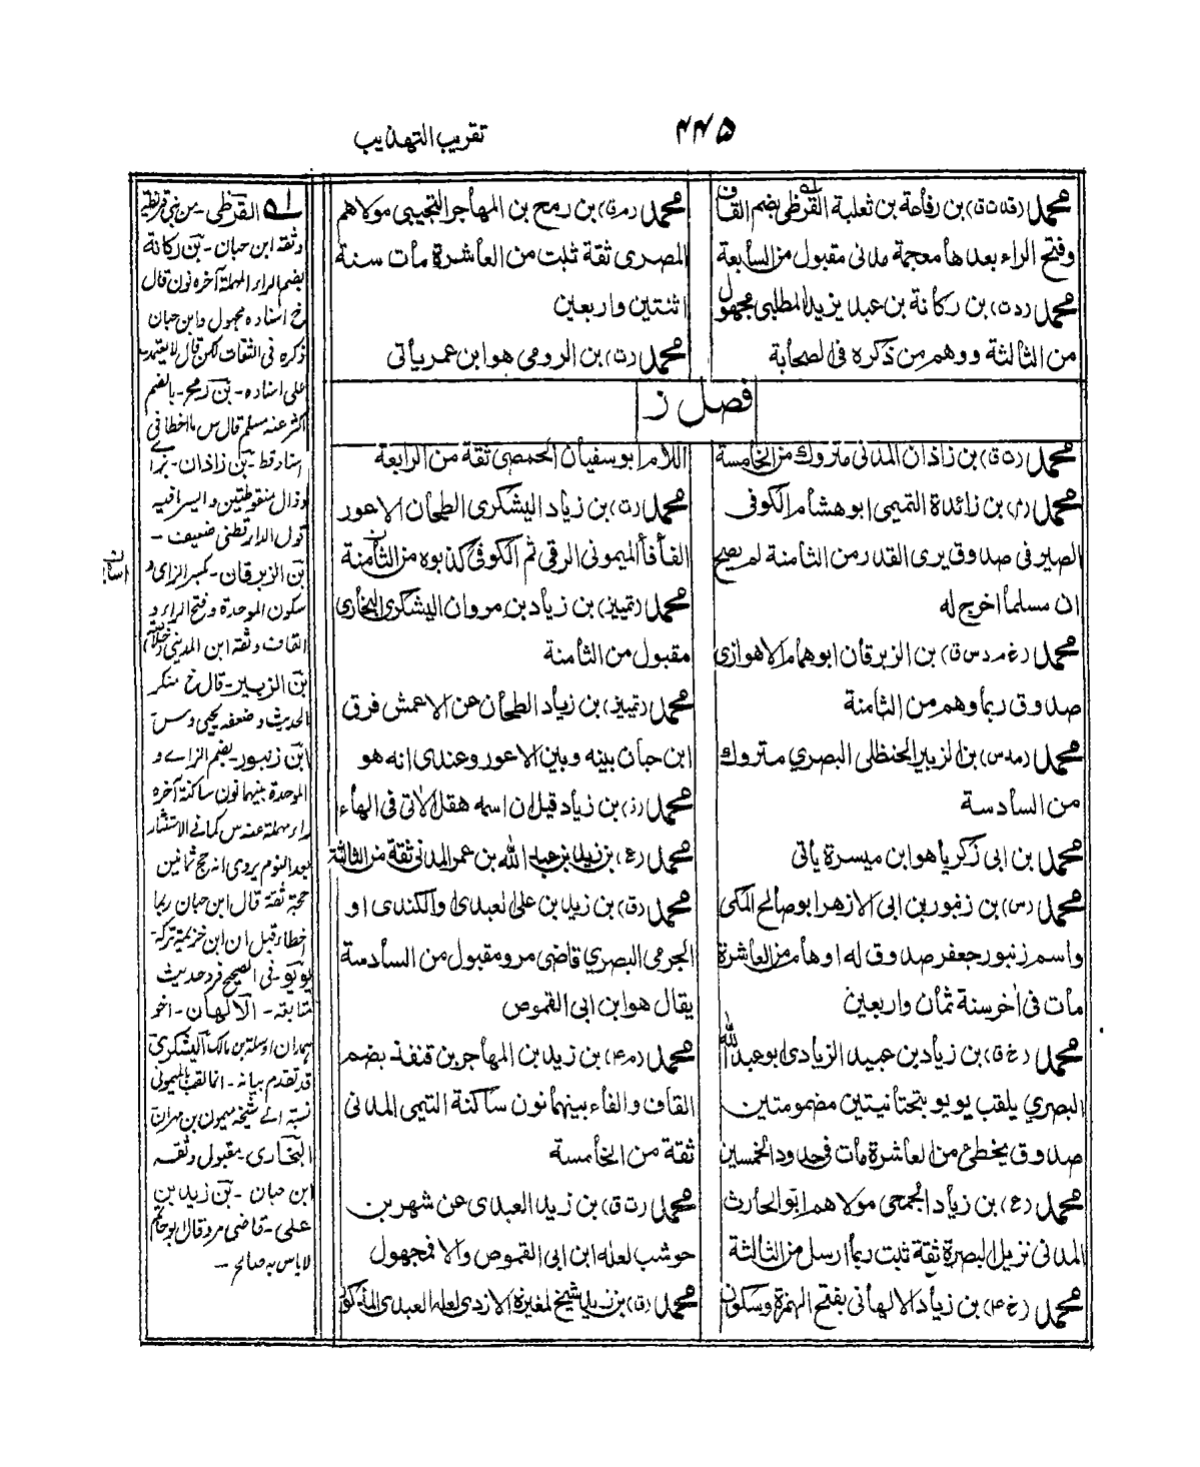 ۴۴۵
تقريب التهذيب
محمد (قد ت ق) بن رفاعة بن ثعلبة القرظى بضم القاف
وفتح الراء بعدها معجمة مدنى مقبول من السابعة
محمد (د ت) بن ركانة بن عبد يزيد المطلبى مجهول
من الثالثة ووهم من ذكره فى الصحابة
محمد (م ق) بن رمح بن المهاجر التجيبى مولاهم
المصرى ثقة ثبت من العاشرة مات سنة
اثنتين واربعين
محمد (ت) بن الرومى هو ابن عمر يأتى
فصل ز
محمد (ت ق) بن زاذان المدنى متروك من الخامسة
محمد (م) بن زائدة التميمى ابو هشام الكوفى
الصيرفى صدوق يرى القدر من الثامنة لم يصح
ان مسلما أخرج له
محمد (خ م د س ق) بن الزبرقان ابو همام الاهوازى
صدوق ربما وهم من الثامنة
محمد (مد س) بن الزبير الحنظلى البصري متروك
من السادسة
محمد بن ابى زكريا هو ابن ميسرة يأتى
محمد (س) بن زنبور بن ابى الازهر ابو صالح المكى
واسم زنبور جعفر صدوق له اوهام من العاشرة
مات فى أخر سنة ثمان واربعين
محمد (خ ق) بن زياد بن عبيد الله الزيادى ابو عبد الله
البصري يلقب يويو بتحتأنيتين مضمومتين
صدوق يخطئ من العاشرة مات فى حدود الخمسين
محمد (ع) بن زياد الجمحى مولاهم ابو الحارث
المدنى نزيل البصرة ثقة ثبت ربما ارسل من الثالثة
محمد (خ ۴) بن زياد الالهانى بفتح الهمزة وسكون
اللام ابو سفيان الحمصى ثقة من الرابعة
محمد (ت) بن زياد اليشكرى الطحان الاعور
الفأفأ الميمونى الرقى ثم الكوفى كذبوه من الثامنة
محمد (تمييز) بن زياد بن مروان اليشكرى البخارى
مقبول من الثامنة
محمد (تمييز) بن زياد الطحان عن الاعمش فرق
ابن حبان بينه وبين الاعور وعندى انه هو
محمد بن زياد قيل ان اسمه هقل الأتى فى الهاء
محمد (ع) بن زيد بن عبد الله بن عمر المدنى ثقة من الثالثة
محمد (ق) بن زيد بن على العبدى او الكندى او
الجرمى البصري قاضى مرو مقبول من السادسة
يقال هو ابن ابى القموص
محمد (م ۴) بن زيد بن المهاجر بن قنفذ بضم
القاف والفاء بينهما نون ساكنة التيمى المدنى
ثقة من الخامسة
محمد (ت ق) بن زيد العبدى عن شهر بن
حوشب لعله ابن ابى القموص والا فمجهول
محمد (ق) بن زيد شيخ لمغيرة الازدى لعله العبدى المذكور
له القرظى - من بنى قريظة
وثقه ابن حبان - بن ركانة
بضم الراء المهملة آخره نون قال
خ اسناده مجهول وابن حبان
ذكره فى الثقات لكن قال لا يعتمد
على اسناده - بن رمح - بالضم
اكثر عنه مسلم قال س ما اخطا فى
اسناد قط - بن زاذان - بزا
وذال منقوطتين و
قول الدارقطنى ضعيف -
بن الزبرقان - بكسر الزاى و
سكون الموحدة وفتح الراء و
القاف وثقه ابن المدينى (خلاصة)
بن الزبير - قال خ منكر
الحديث وضعفه يحيى وس
ابن زنبور - بضم الزاے و
الموحدة بينهما نون ساكنة آخره
راء مهملة عند س
يروى انه حج ثمانين
حجة ثقة قال ابن حبان ربما
اخطاء قيل ان ابن خزيمة تركه
يويو - فى الصحيح فرد حديث
متابعة - الالهان - اخو
همدان اوسلة بن مالك اليشكرى
قد تقدم بيانه - انما لقب بالميمونى
نسبة الى شيخه ميمون بن مهران
البخارى - مقبول وثقه
ابن حبان - بن زيد بن
على - قاضى مرو قال ابو حاتم
لاباس به صالح -